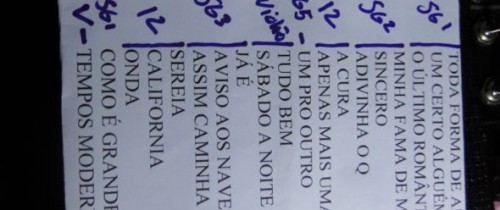 SG1 TODA FORMA DE A
UM CERTO ALGUÉM
O ÚLTIMO ROMÂNT
MINHA FAMA DE M
SG2 SINCERO
ADIVINHA O Q
A CURA
12 APENAS MAIS UMA
UM PRO OUTRO
TUDO BEM
Violão SÁBADO A NOITE
JÁ É
SG3 AVISO AOS NAVE
ASSIM CAMINHA
SEREIA
12 CALIFORNIA
ONDA
SG1 COMO É GRANDE
V - TEMPOS MODER